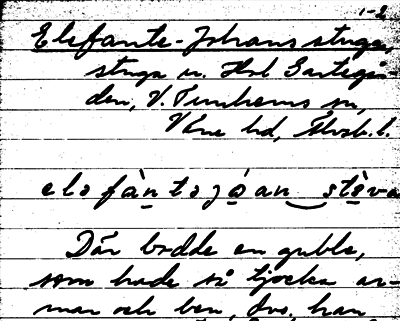 1-2
Elefante-Johans stuga,
stuga u. Hol Gastegår-
den, V. Tunhems sn,
Väne hd, Älvsb. l.
elefàntajóan stèva
Där bodde en gubbe,
som hade så tjocka ar-
mar och ben, dvs. han